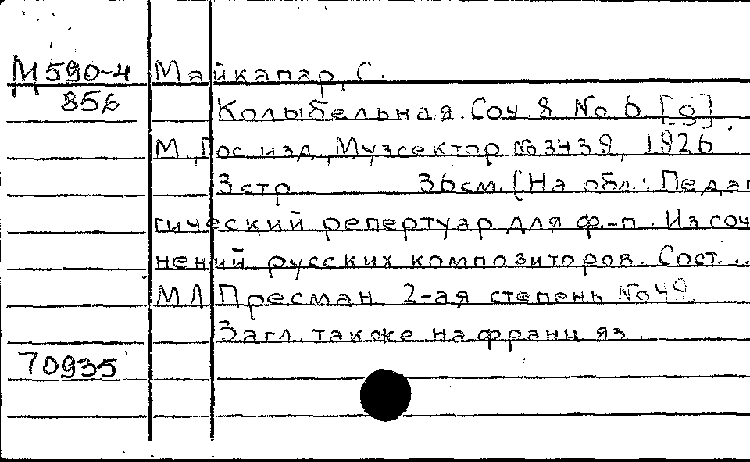 М590-4 Майкапар, С.
856 Колыбельная. Соч. 8 № 6 [g]
М., Гос. изд., Музсектор № 3438, 1926
3 стр 36 см. [На обл.: Педаг
гический репертуар для ф-п. Из соч
нений русских композиторов. Сост. ..
М Л Пресман 2-ая степень № 49
Загл. также на франц яз
70935